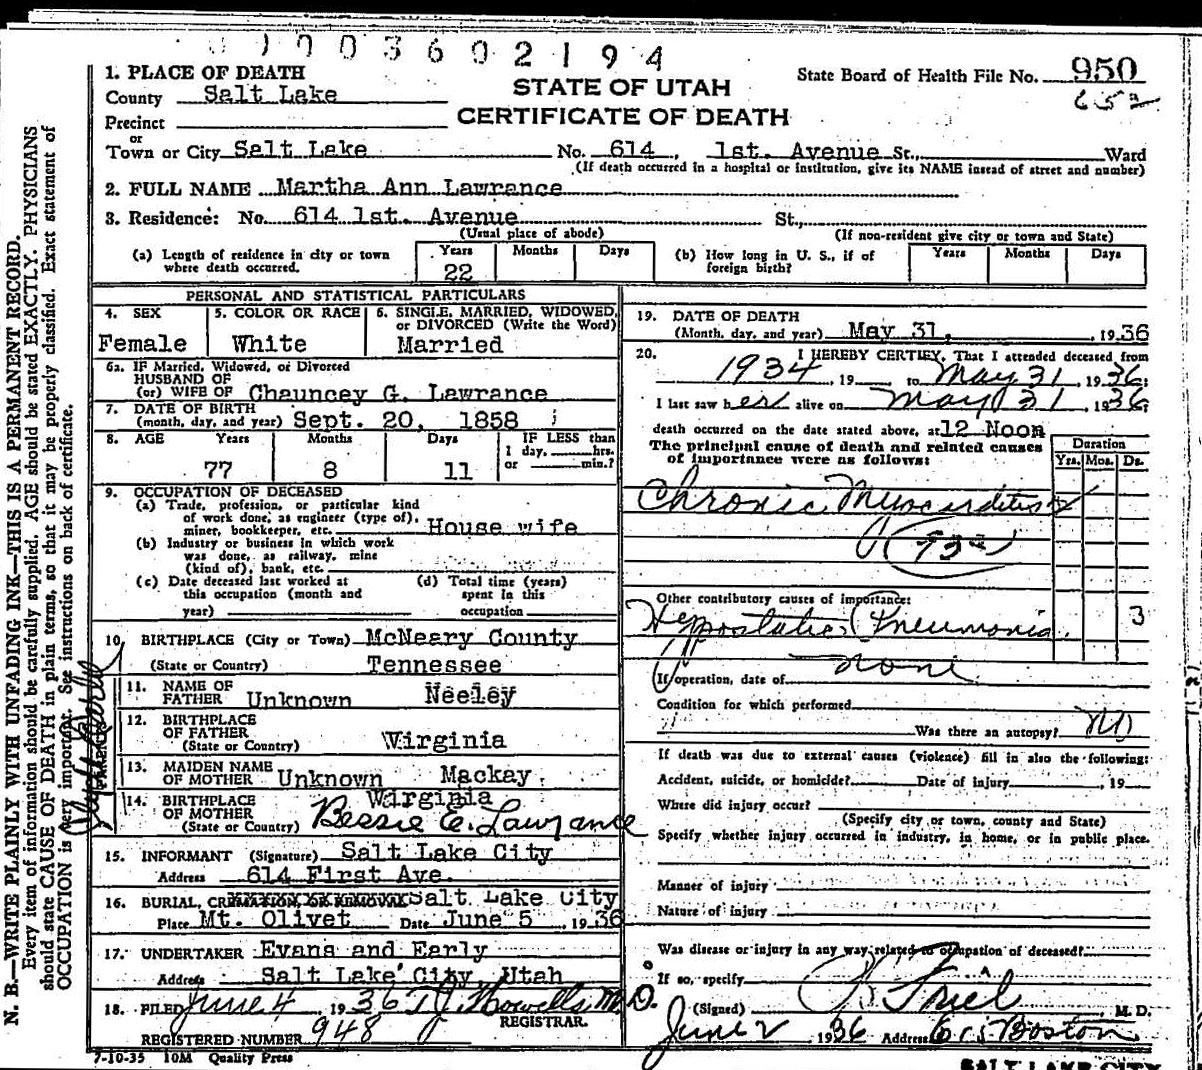 0 1 0 0 3 6 0 2 1 9 4
STATE OF UTAH
CERTIFICATE OF DEATH
State Board of Health File No. 950
652
1. PLACE OF DEATH
County Salt Lake
Precinct
or
Town or City Salt Lake No. 614, 1st. Avenue St., Ward
(If death occurred in a hospital or institution, give its NAME instead of street and number)
2. FULL NAME Martha Ann Lawrance
3. Residence: No. 614 1st. Avenue St.,
(Usual place of abode) (If non-resident give city or town and State)
(a) Length of residence in city or town where death occurred. Years 22 Months Days
(b) How long in U. S., if of foreign birth? Years Months Days
PERSONAL AND STATISTICAL PARTICULARS
4. SEX Female
5. COLOR OR RACE White
6. SINGLE, MARRIED, WIDOWED, or DIVORCED (Write the Word) Married
6a. IF Married, Widowed, or Divorced
HUSBAND OF
(or) WIFE OF Chauncey G. Lawrance
7. DATE OF BIRTH
(month, day, and year) Sept. 20, 1858
8. AGE Years 77 Months 8 Days 11 IF LESS than 1 day, hrs. or min.?
9. OCCUPATION OF DECEASED
(a) Trade, profession, or particular kind
of work done, as engineer (type of),
miner, bookkeeper, etc. House wife
(b) Industry or business in which work
was done, as railway, mine
(kind of), bank, etc.
(c) Date deceased last worked at
this occupation (month and
year)
(d) Total time (years)
spent in this
occupation
10. BIRTHPLACE (City or Town) McNeary County
(State or Country) Tennessee
PARENTS
11. NAME OF
FATHER Unknown Neeley
12. BIRTHPLACE
OF FATHER
(State or Country) Virginia
13. MAIDEN NAME
OF MOTHER Unknown Mackay
14. BIRTHPLACE Virginia
OF MOTHER
(State or Country) Bessie E. Lawrance
15. INFORMANT (Signature) Salt Lake City
Address 614 First Ave.
16. BURIAL, CREMATION, OR REMOVAL Salt Lake City
Place Mt. Olivet Date June 5, 1936
17. UNDERTAKER Evans and Early
Address Salt Lake City, Utah
18. FILED June 4 1936 T J Howells M.D.
REGISTRAR.
REGISTERED NUMBER 948
7-10-35 10M Quality Press
19. DATE OF DEATH
(Month, day, and year) May 31, 1936
20. I HEREBY CERTIFY, That I attended deceased from
1934, 19 to May 31, 1936;
I last saw her alive on May 31, 1936;
death occurred on the date stated above, at 12 Noon
The principal cause of death and related causes
of importance were as follows:
Duration
Yrs. Mos. Ds.
Chronic Myocarditis
Other contributory causes of importance:
Hypostatic Pneumonia 3
If operation, date of none
Condition for which performed
Was there an autopsy? no
If death was due to external causes (violence) fill in also the following:
Accident, suicide, or homicide? Date of injury, 19
Where did injury occur?
(Specify city or town, county and State)
Specify whether injury occurred in industry, in home, or in public place.
Manner of injury
Nature of injury
Was disease or injury in any way related to occupation of deceased?
If so, specify
(Signed) M. D.
June 2 1936 Address Boston
SALT LAKE CITY
N. B.—WRITE PLAINLY WITH UNFADING INK—THIS IS A PERMANENT RECORD.
Every item of information should be carefully supplied. AGE should be stated EXACTLY. PHYSICIANS
should state CAUSE OF DEATH in plain terms, so that it may be properly classified. Exact statement of
OCCUPATION is very important. See instructions on back of certificate.